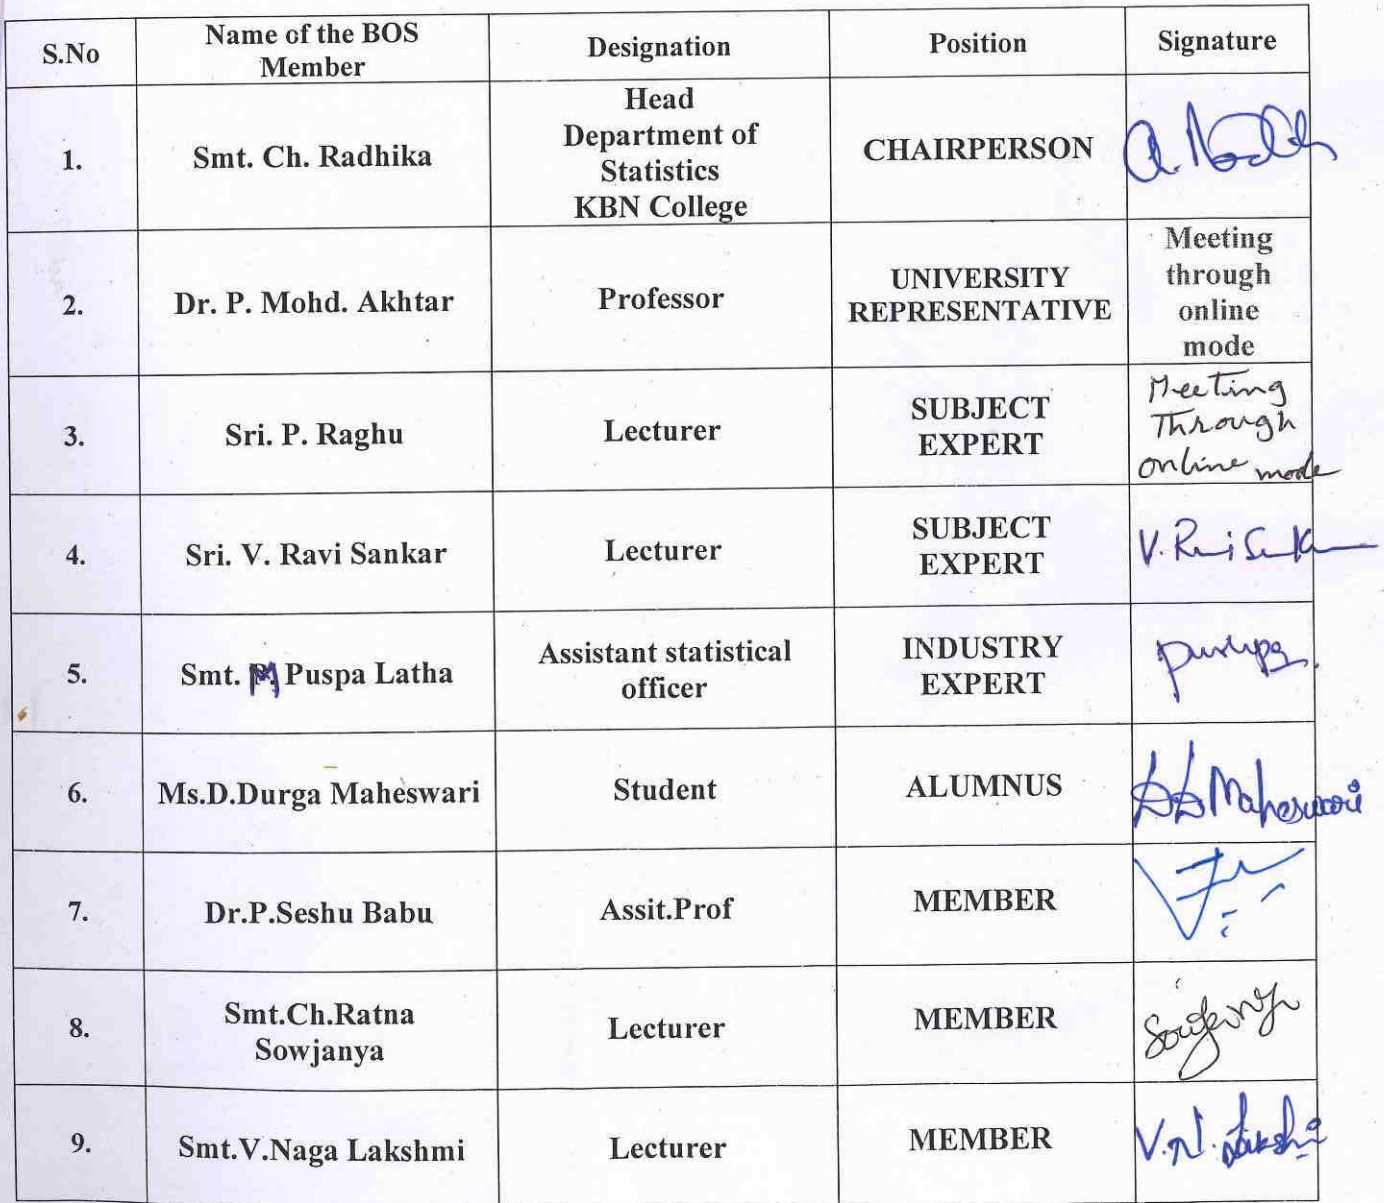 S.No
Name of the BOS
Member
Designation
Position
Signature
1.
Smt. Ch. Radhika
Head
Department of
Statistics
KBN College
CHAIRPERSON
2.
Dr. P. Mohd. Akhtar
Professor
UNIVERSITY
REPRESENTATIVE
Meeting
through
online
mode
3.
Sri. P. Raghu
Lecturer
SUBJECT
EXPERT
Meeting
Through
online mode
4.
Sri. V. Ravi Sankar
Lecturer
SUBJECT
EXPERT
V. Ravi Sankar
5.
Smt. M Puspa Latha
Assistant statistical
officer
INDUSTRY
EXPERT
6.
Ms.D.Durga Maheswari
Student
ALUMNUS
DD Maheswari
7.
Dr.P.Seshu Babu
Assit.Prof
MEMBER
8.
Smt.Ch.Ratna
Sowjanya
Lecturer
MEMBER
Sowjanya
9.
Smt.V.Naga Lakshmi
Lecturer
MEMBER
V.N. Lakshmi